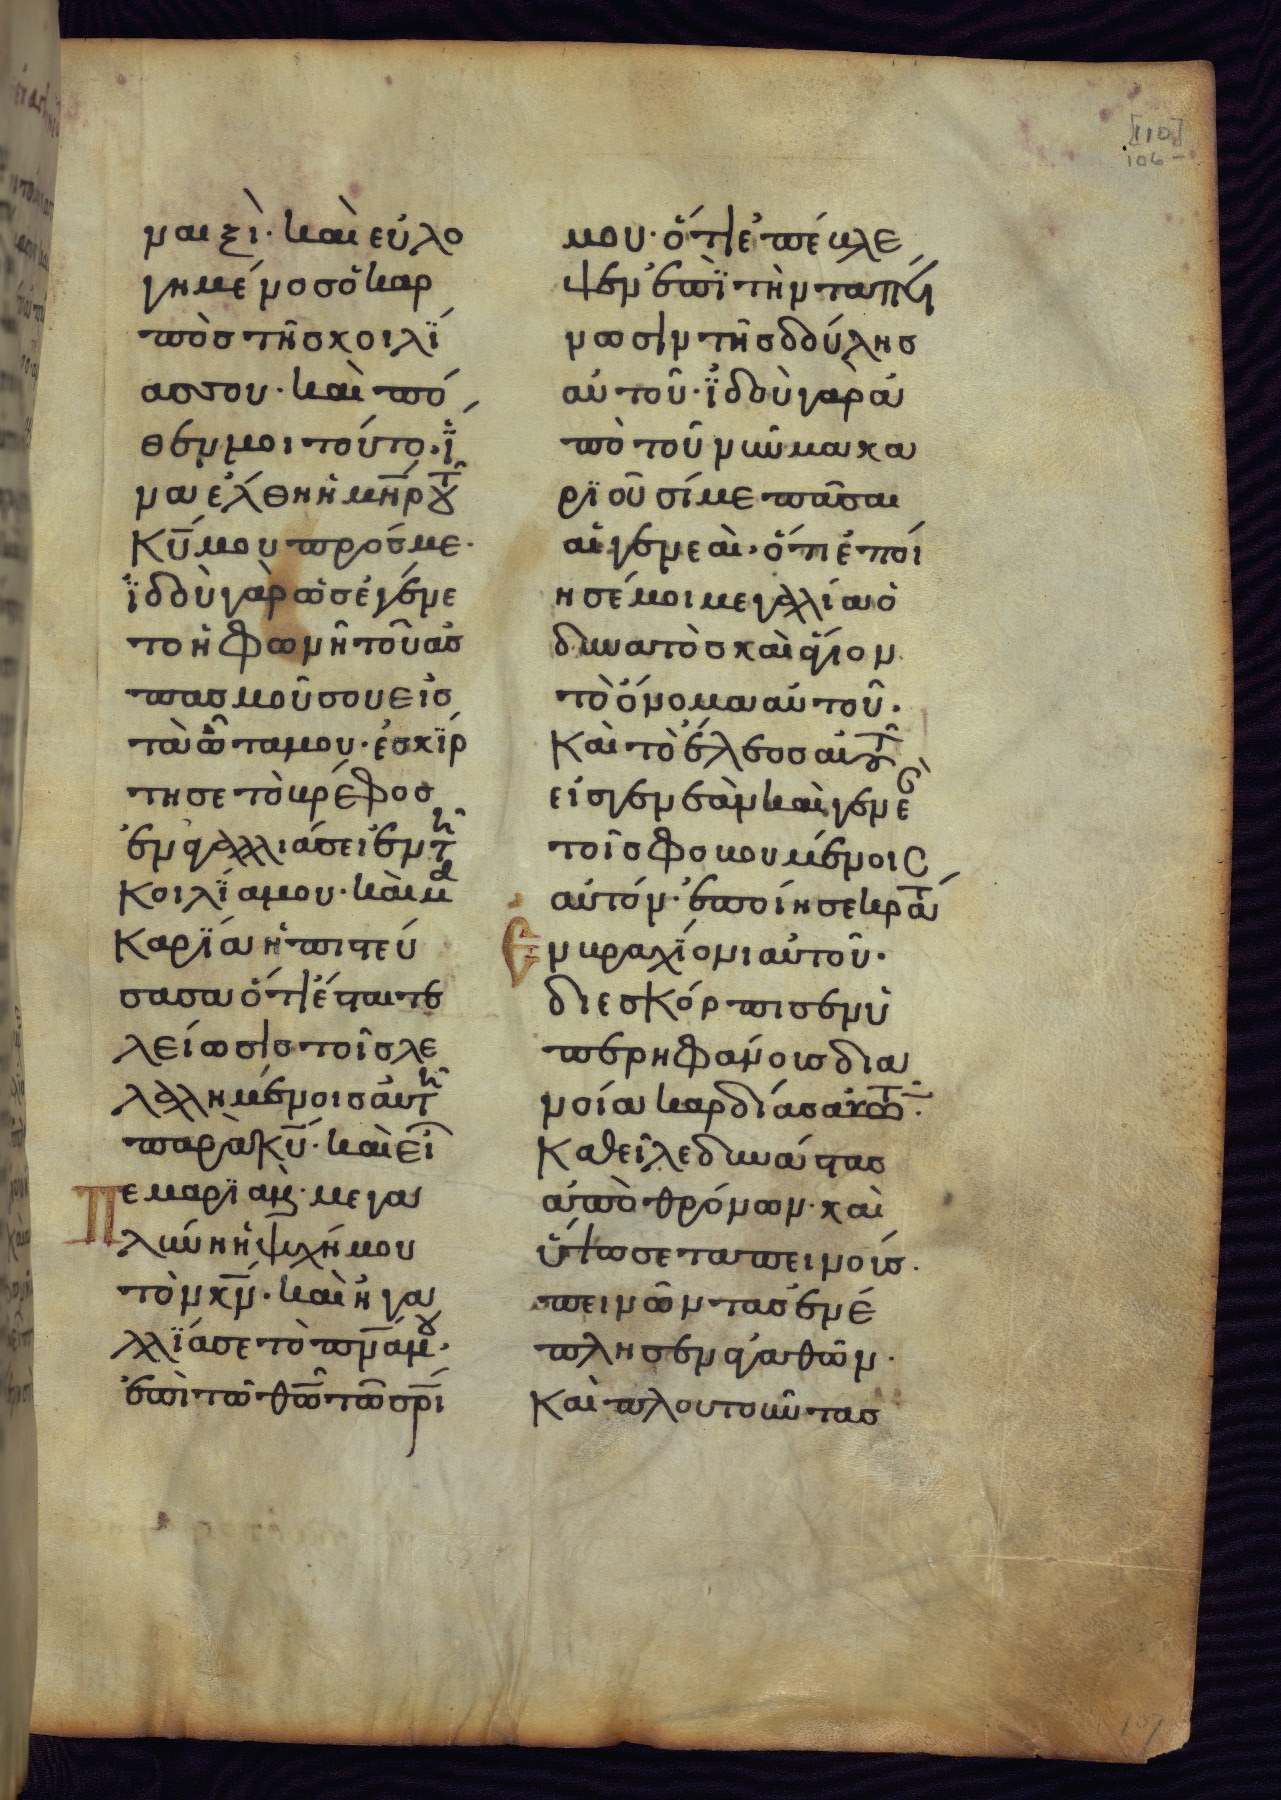 [110]
106
ναιξὶ· καὶ εὐλο
γημένος ὁ καρ
πὸς τῆς κοιλΐ
ας σου· καὶ πό
θεν μοι τούτο· ἵ
να ἔλθη ἡ μη̅ρ τȣ͂
κ̅υ̅ μου προσμε·
ἰδοὺ γὰρ ὡς ἐγένε
το ἡ φωνὴ τοῦ ἀσ
πασμοῦ σου εἰς
τὰ ὦτα μου· ἐσκίρ
τησε τὸ βρέφος
ἐν ἀγαλλιάσει ἐν τῆ
κοιλΐα μου· καὶ μα
καρΐα ἡ πιστεύ
σασα ὅτι ἔσται τε
λείωσις τοῖς λε
λαλημένοις αὐτῆ
παρὰ κ̅υ̅· καὶ εἶ
πε μαρϊαμ· μεγα
λύνη ἡ ψυχή μου
τὸν κ̅ν̅· καὶ ἠγα
λλΐασε τὸ πν̅ά μȣ·
ἐπὶ τῶ θ̅ω̅ τῶ σ̅ρ̅ι
μου· ὅτι ἐπέβλε
ψεν ἐπῒ τὴν ταπεί
νωσιν τῆς δούλης
αὐτοῦ· ἰδοὺ γὰρ ἀ
πὸ τοῦ νῦν μακα
ρϊοῦσί με πᾶσαι
αἱ γενεαὶ· ὅτι ἐποί
ησέ μοι μεγαλία ὁ
δυνατὸς καὶ ἅγιον
τὸ ὄνομα αὐτοῦ·
Καὶ τὸ ἔλεος αὐτȣ͂
εἰς γενεὰν καὶ γενεὰ
τοῖς φοβουμένοις
αὐτόν· ἐποίησε κράτ
Εν βραχΐονι αὐτοῦ·
διεσκόρπισεν ὑ
περηφάνοις δια
νοία καρδίας αὐτῶ·
Καθεῖλε δυνάστας
ἀπὸ θρόνων· καὶ
ὕψωσε ταπεινοίς·
πεινῶντας ἐνέ
πλησεν ἀγαθῶν·
Καὶ πλουτοῦντας
107